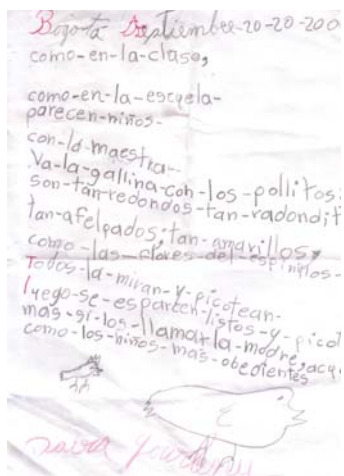 Bogotá Septiembre-20-20-200
como-en-la-clase,
como-en-la-escuela-
parecen-niños-
con-la-maestra-
Va-la-gallina-con-los-pollitos:
son-tan-redondos-tan-radondit
tan-afelpados,-tan-amarillos,
como-las-flores-del-espinillos-
Todos-la-miran-y-picotean-
luego-se-esparcen-listos-y-picot
mas-si-los-llamar-la-madre,acu
como-los-niños-mas-obedientes